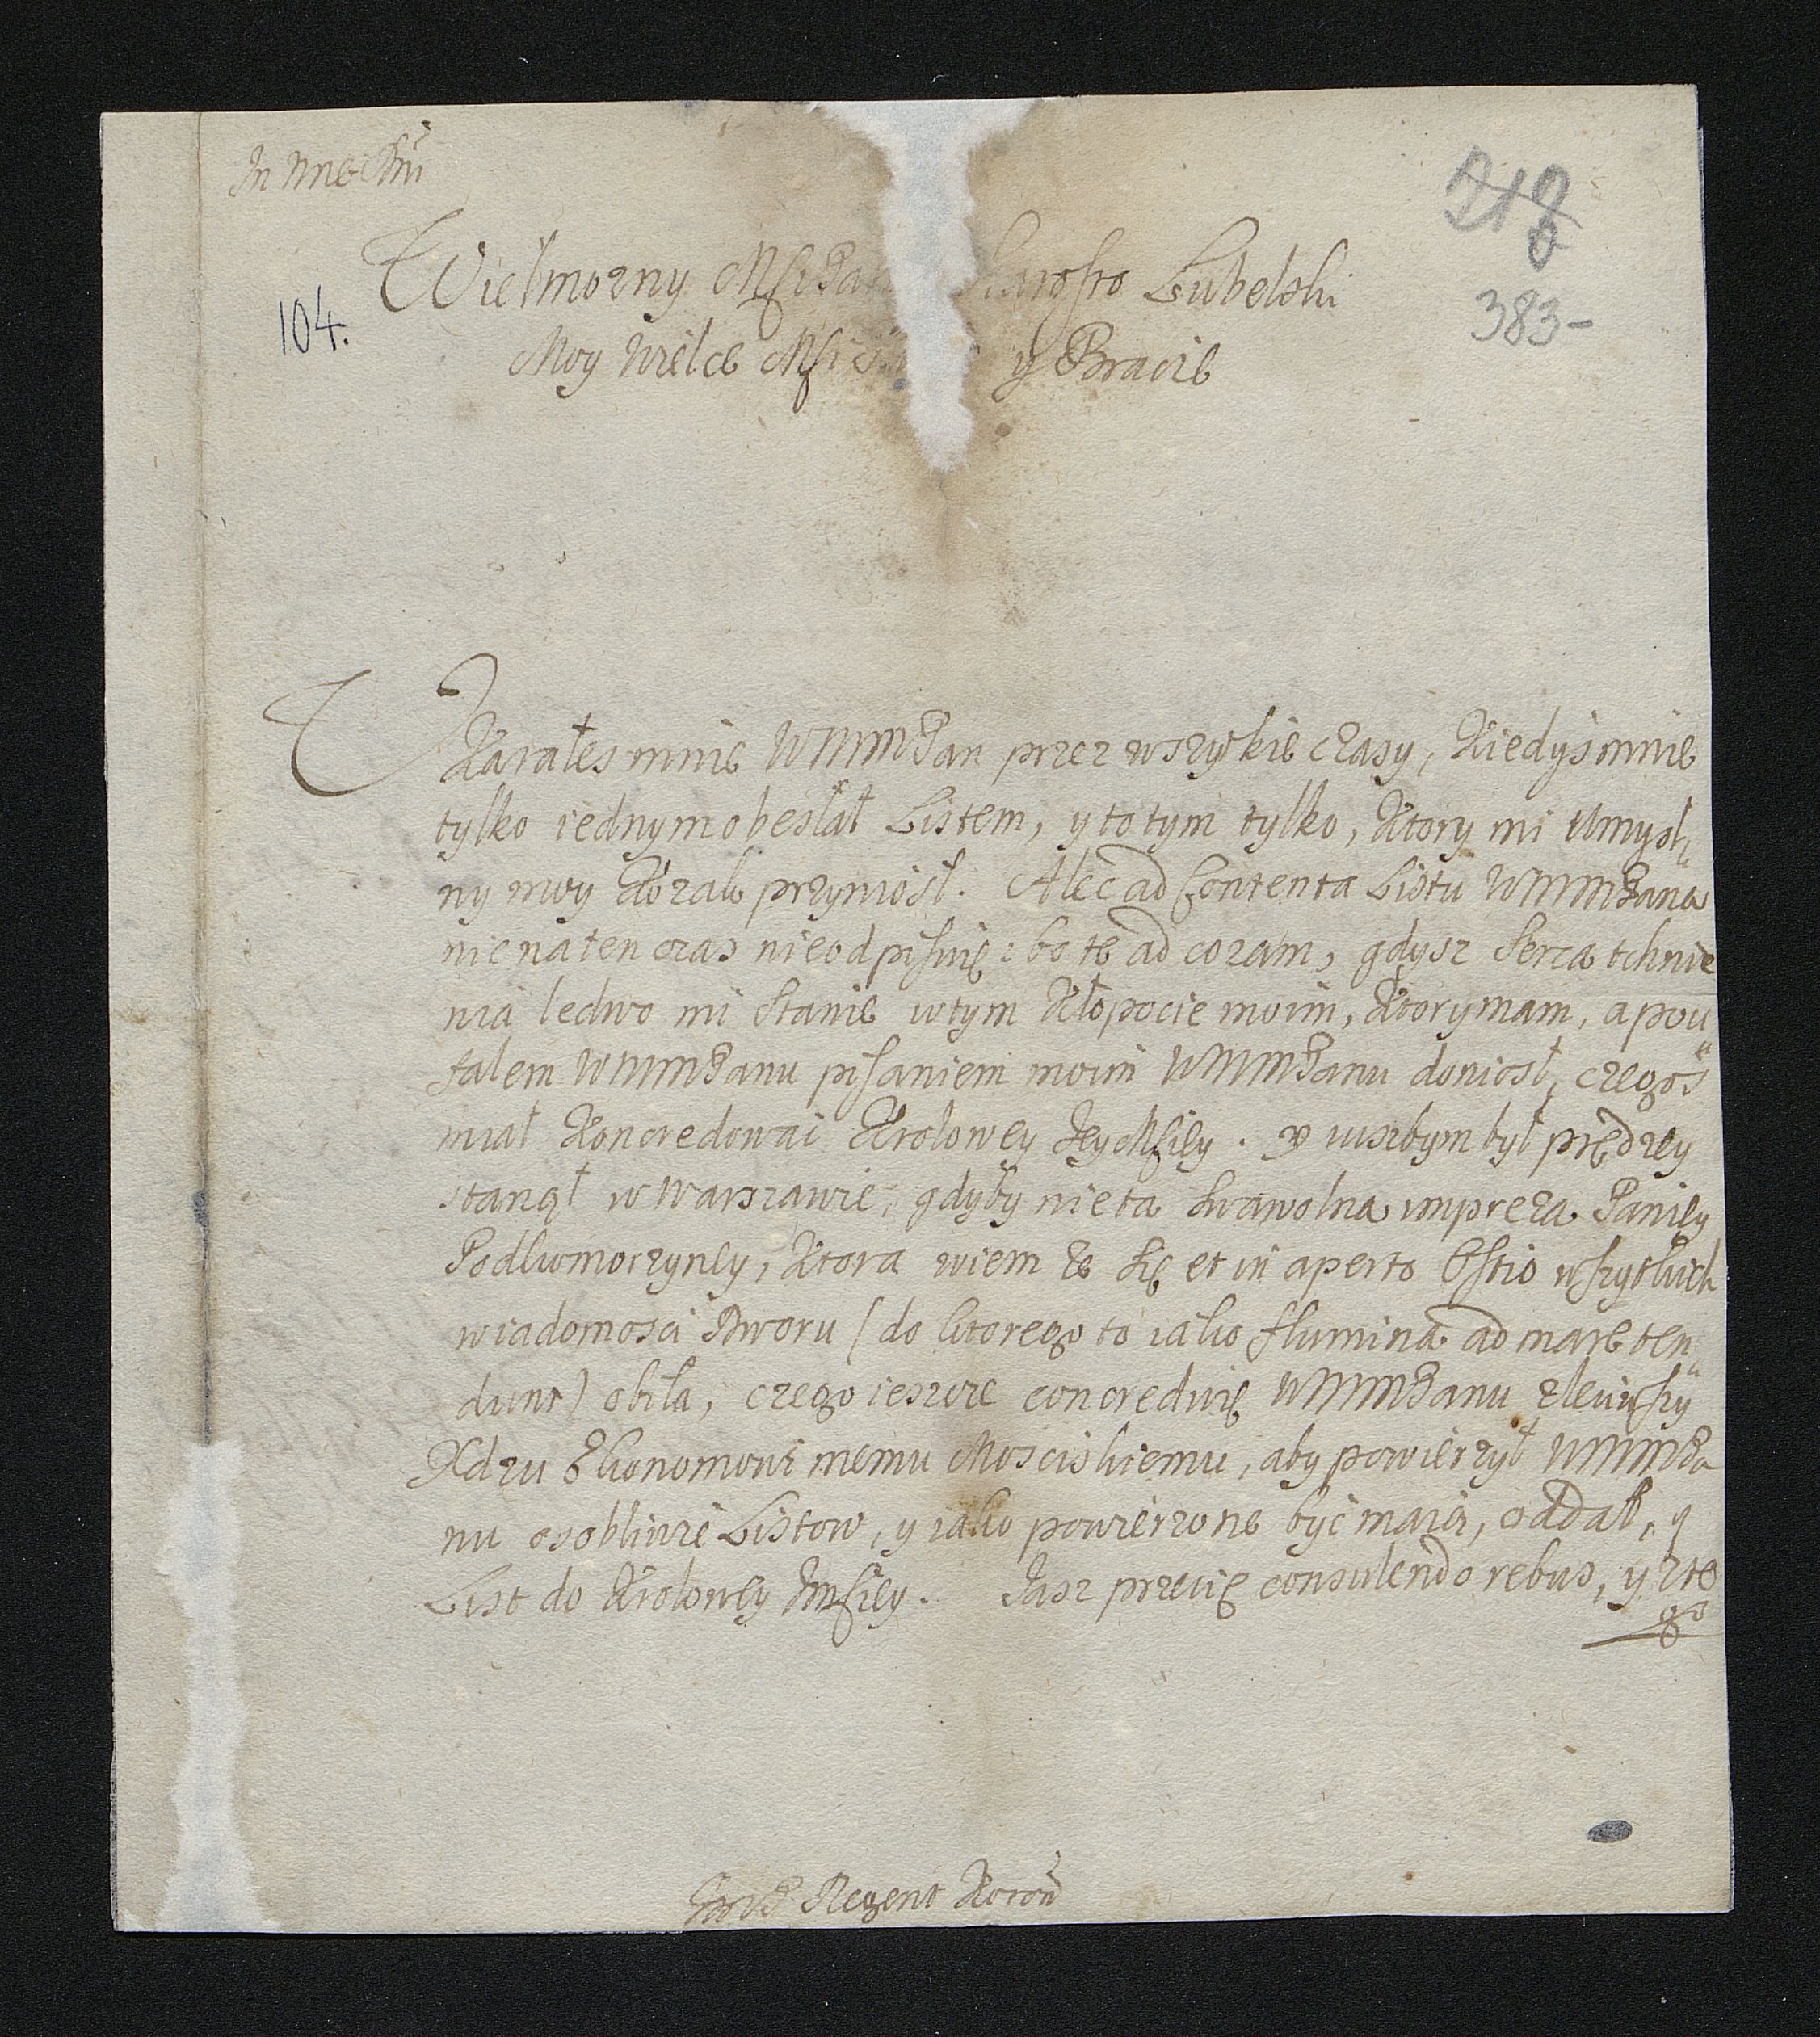 In Nne Dni
218
Wielmozny Msi Pan Starosto Lubelski
104.
383-
Moy Wielce Msi y Bracie
Karałes mnie WMMPan przez wszytkie czasy, Kiedyś mnie
tylko iednym obesłał Listem, y to tym tylko, Ktory mi Umysl„
ny moy Kozak przyniosł. Alec ad Contenta Listu WMMPana
nic na ten czas nie odpisuię: bo te ad coram, gdysz serca tchnie
nia ledwo mi stanie w tym Kłopocie moim, Ktory mam, a pou„
fałem WMMPanu pisaniem moim WMMPanu doniosł, czegoś
miał Koncredowai Krolowey Jey Msiey. y iuszbym był prędzey
stanął w Warszawie, gdyby nie ta swawolna impreza Paniey
Podkomorzyney, Ktora wiem ze się et in aperto Ostio wszytkich
wiadomosci Dworu (do ktorego to iako flumina ad mare ten„
dunt) obiła, czego ieszcze concreduię WMMPanu zleciwszy
Xdzu Ekonomowi memu Mosciskiemu, aby powierzył WMMPa
nu osobliwie Listow, y iako powierzone być maią, oddał, y
List do Krolowey JMsiey. Jasz przecię consulendo rebus, y zte
go
Regent Koron